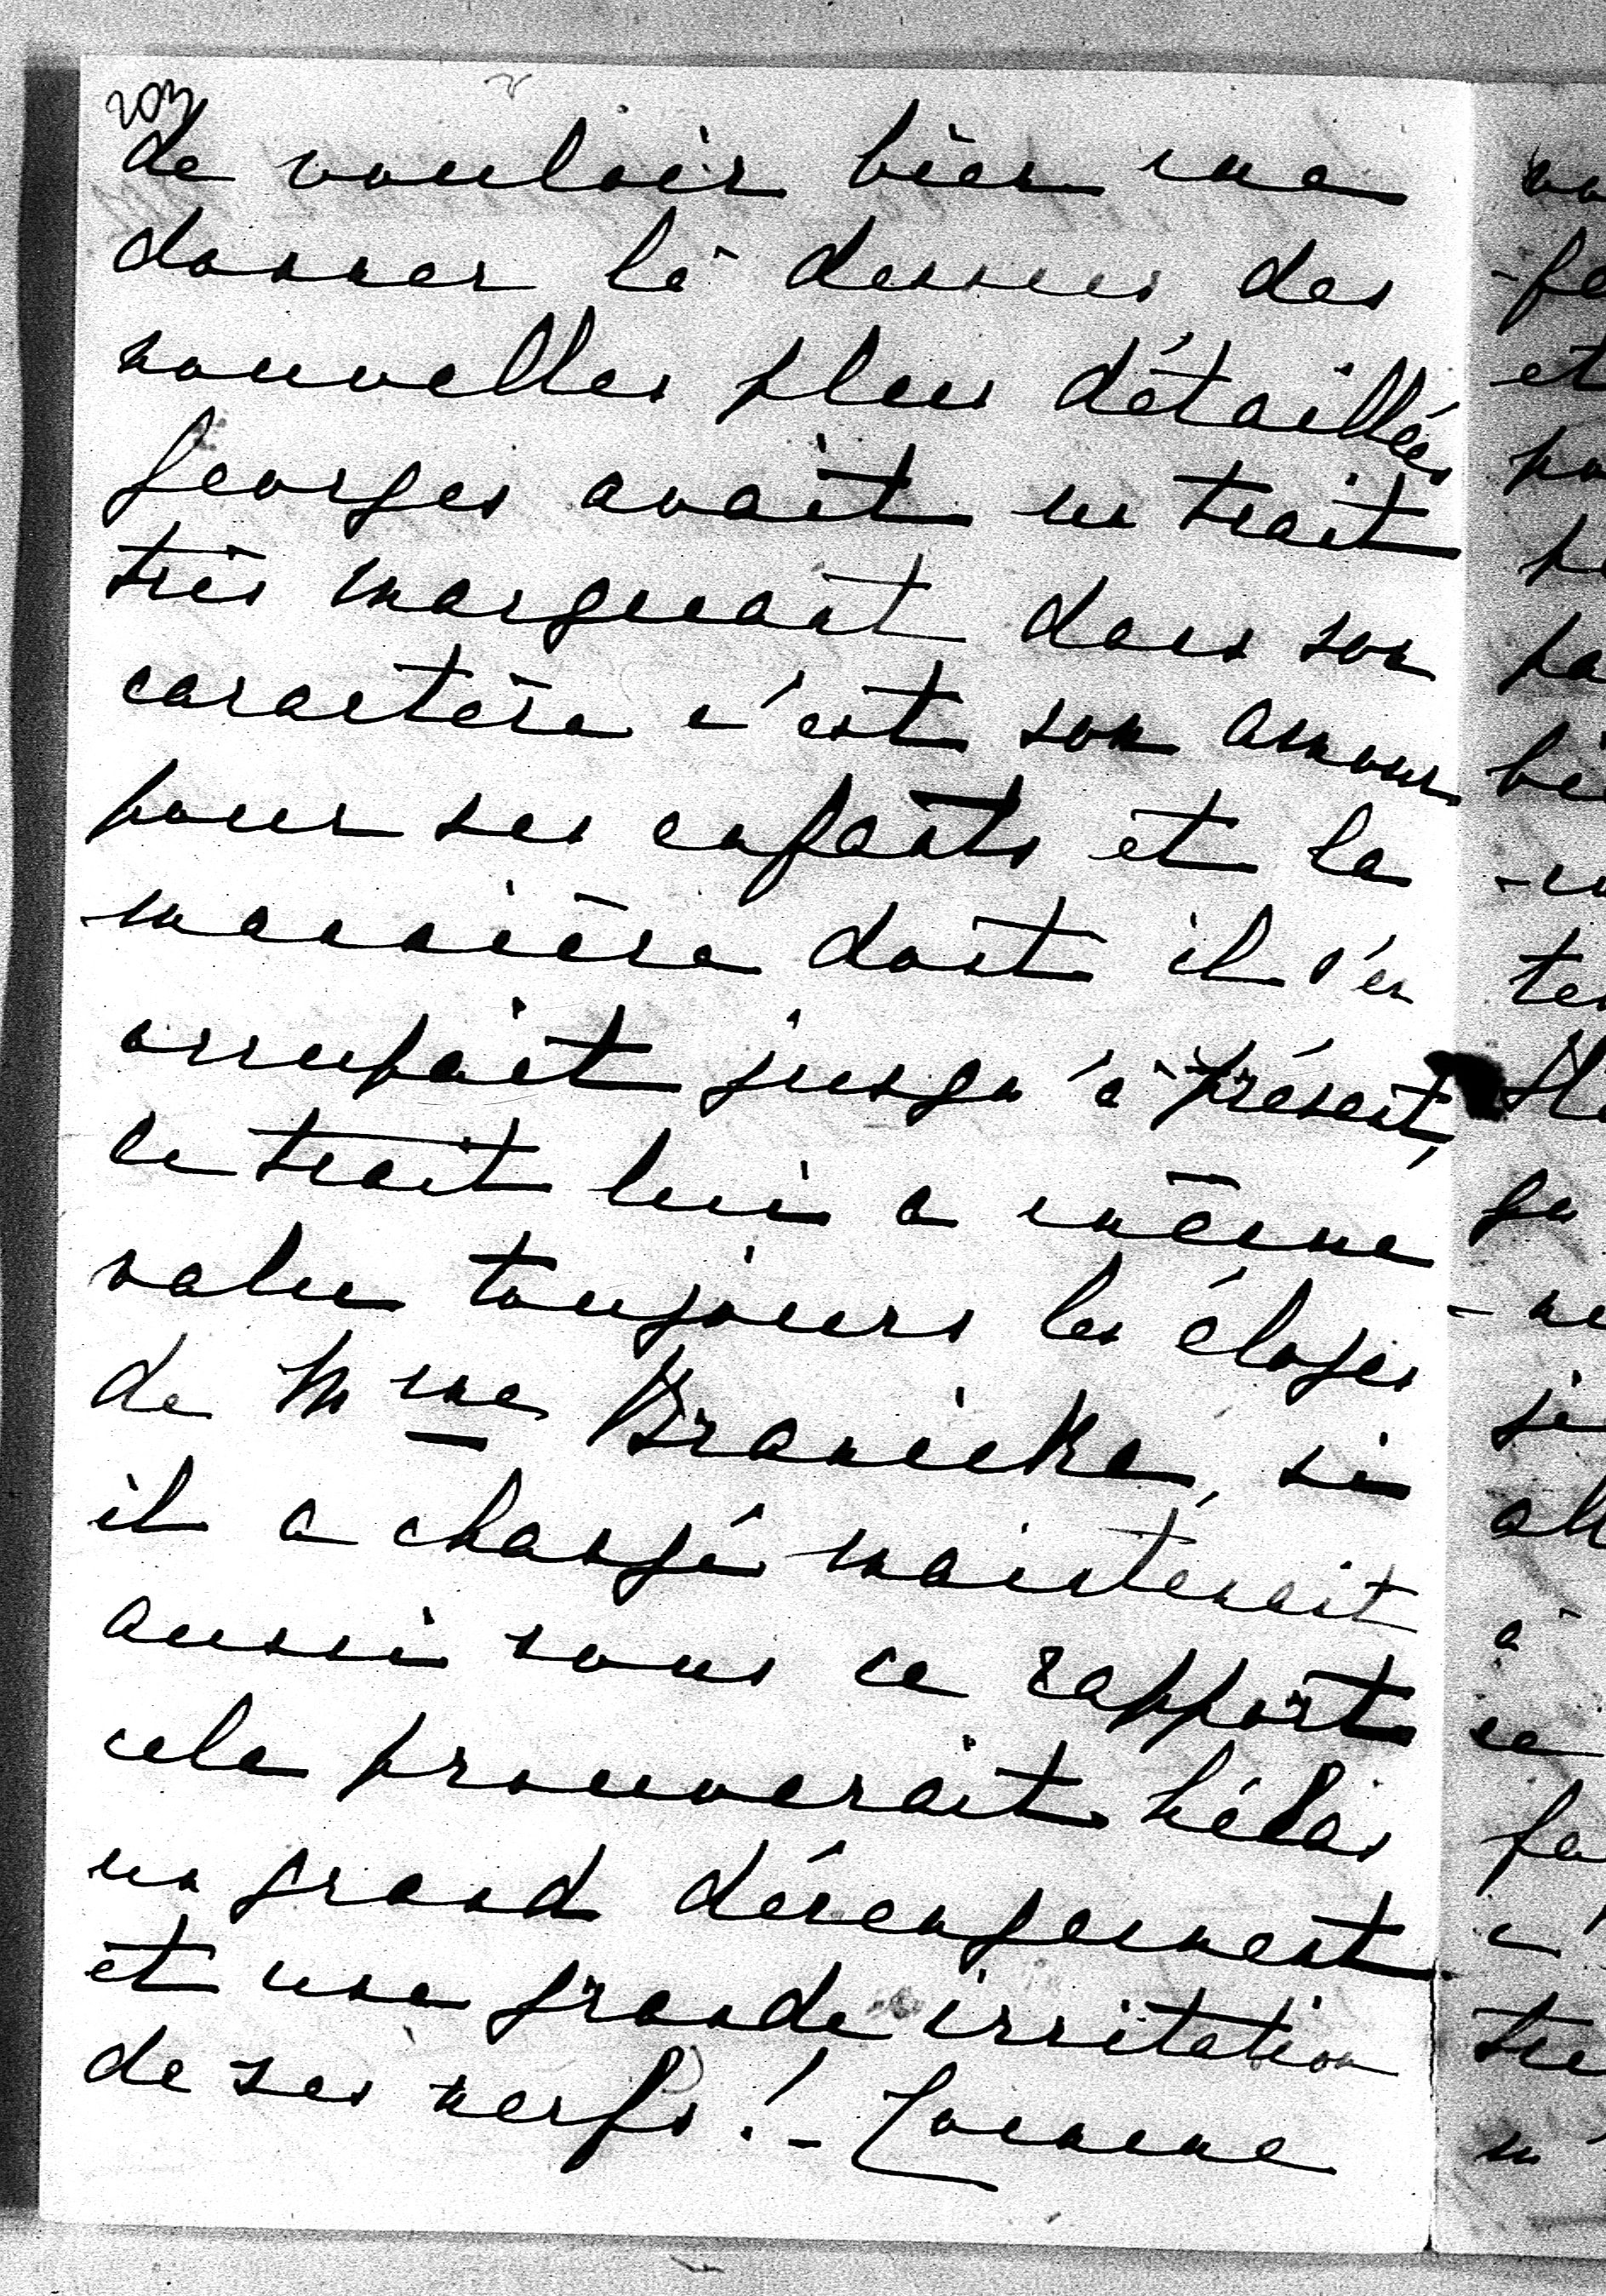 203
de vouloir bien me
donner là dessus des
nouvelles plus détaillées
Georges avait un trait
très marquant dans son
caractère c'est son amour
pour ses enfants et la
manière dont il s'en
occupait jusqu'à présent,
ce trait lui a même
valu toujours les éloges
de Mme Branicka, si
il a changé maintenant
aussi sous ce rapport
cela prouverait hélas
un grand dérangement
et une grande irritation
de ses nerfs! - Comme